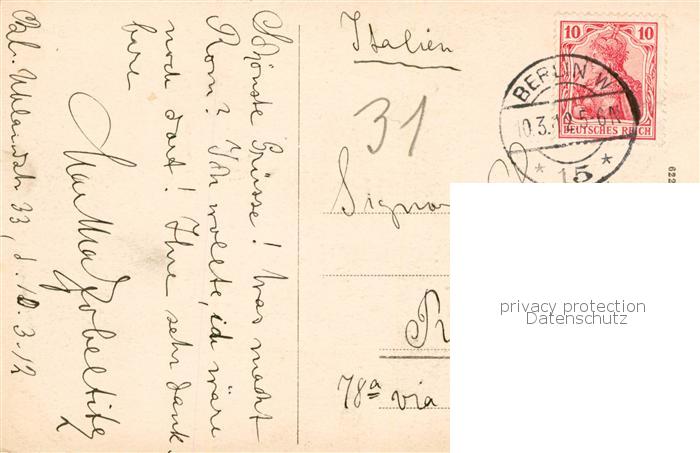 Schönste Grüsse! Was macht
Rom? Ich wollte, ich wäre
noch dort! Ihre sehr dank-
bare
Martha Zobeltitz
Uhlandstr 33, d. 10.3.12
Italien
31
Signor
78a via
10 10
DEUTSCHES REICH
BERLIN W
10.3.12.5-6N
* 15 *
622
privacy protection
Datenschutz